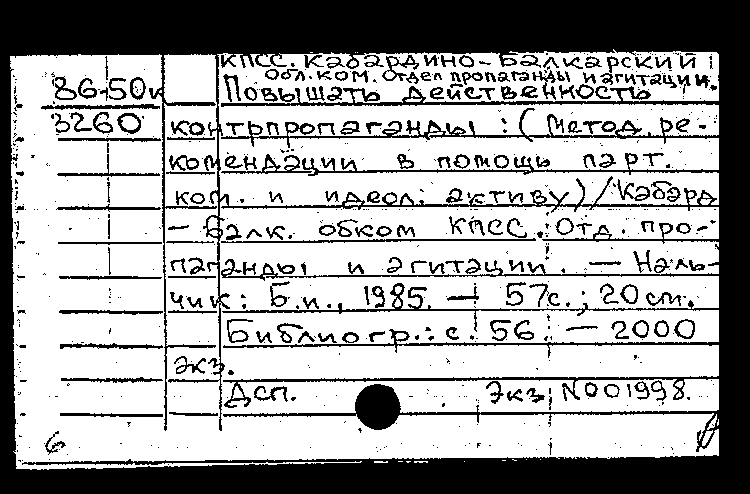 КПСС. Кабардино-Балкарский
Обл. ком. Отдел пропаганды и агитации.
86-50к Повышать действенность
3260 контрпропаганды : (Метод. ре-
комендации в помощь парт.
ком. и идеол. активу) / Кабард
- Балк. обком КПСС. Отд. про-
паганды и агитации. — Наль-
чик: Б.и., 1985. — 57с.; 20см.
Библиогр.: с. 56. — 2000
экз.
Дсп. Экз. N001998.
6